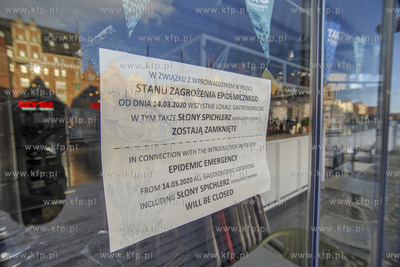 www.kfp.pl www.kfp.pl www.kfp.pl
W ZWIĄZKU Z WPROWADZENIEM W POLSCE
STANU ZAGROŻENIA EPIDEMICZNEGO
OD DNIA 14.03.2020 WSZYSTKIE LOKALE GASTRONOMICZNE
W TYM TAKŻE SŁONY SPICHLERZ
ZOSTAJĄ ZAMKNIĘTE
IN CONNECTION WITH THE INTRODUCTION IN POLAND
EPIDEMIC EMERGENCY
FROM 14.03.2020 ALL GASTRONOMIC LOCATIONS
INCLUDING SŁONY SPICHLERZ
WILL BE CLOSED
www.kfp.pl www.kfp.pl www.kfp.pl